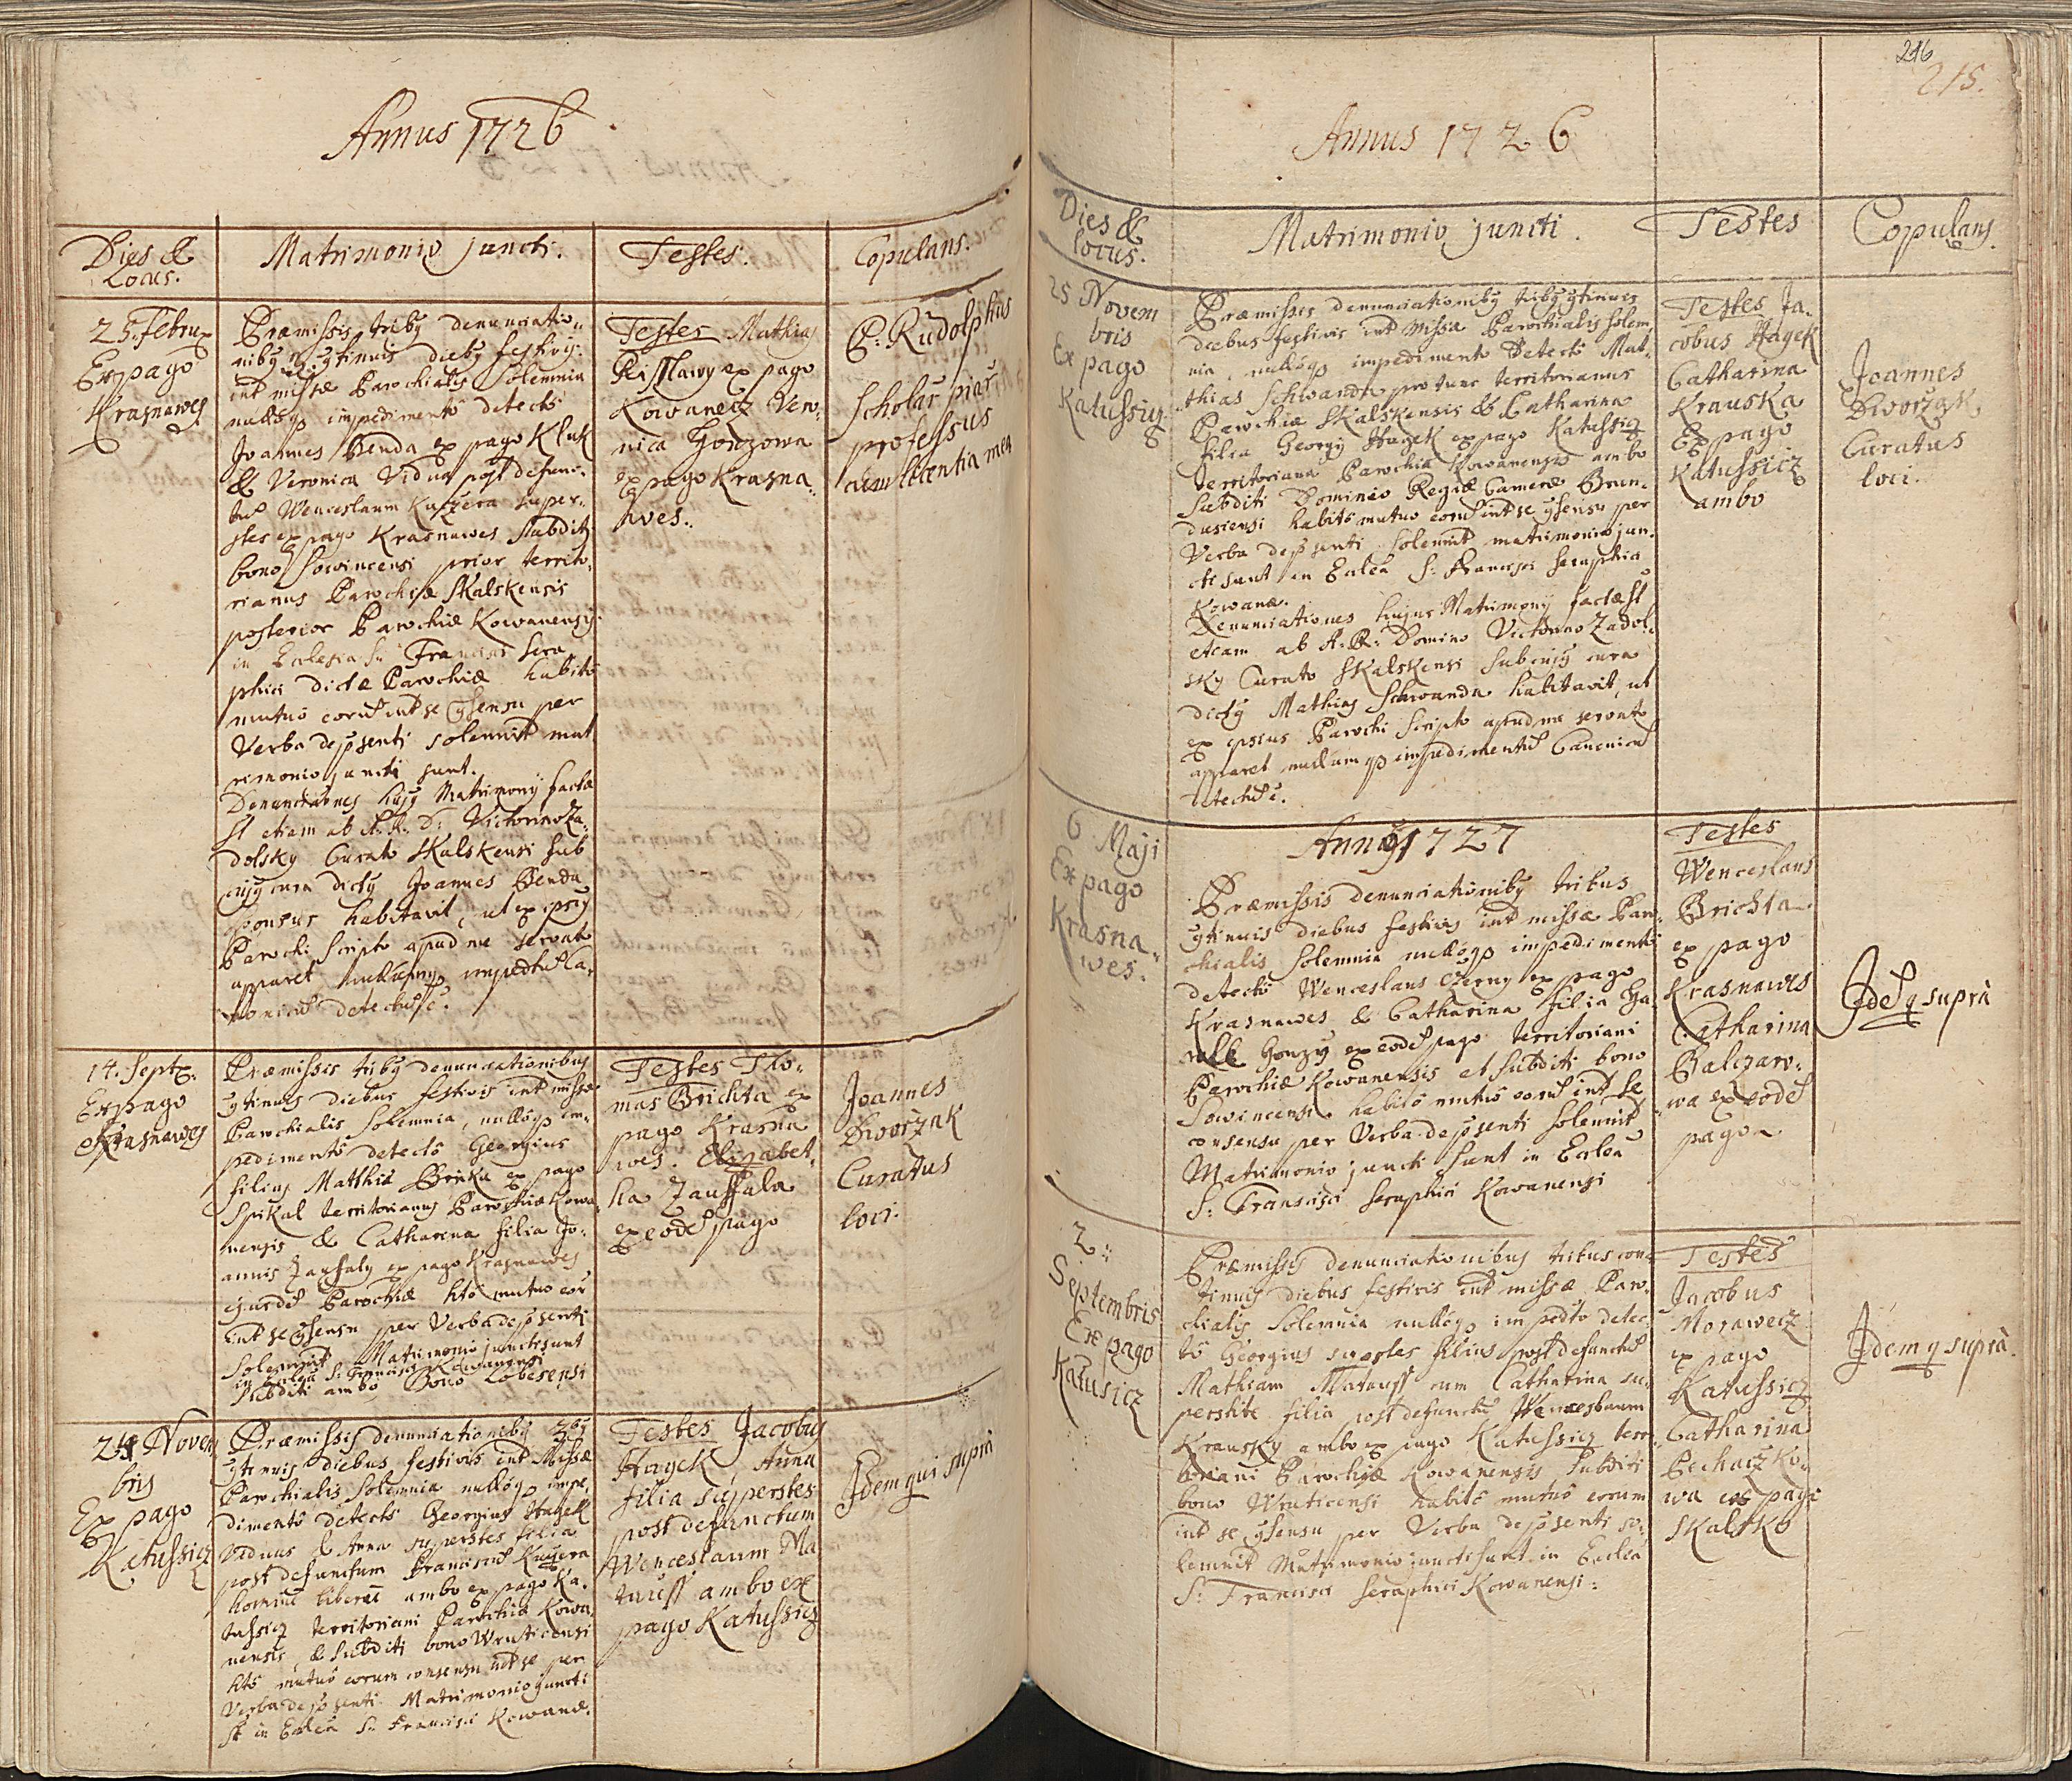 Annus 1726
Dies &
Locus.
Matrimonio juncti.
Testes.
Copulans.
25. Febru
Ex pago
Krasnawes
Præmissis tribg denunciatio„
nibg gtinuis diebg festivis
int missæ Parochialis Solemnia
nullogp impedimento detecto
Joannes Benda ex pago Kluk
& Veronica Vidua post defunc„
tu Wenceslaum Kuczera super„
stes ex pago Krasnawes Subditi
bono Sowincensi prior territo„
rianus Parochiæ Skalskensis
posterior Parochiæ Kowanensis
in Eclesia S: Francisci Sera„
phici dictæ Parochiæ habito
mutuo eoru int se gsensu per
Verba de psenti solennit mat
rimonio juncti sunt.
Denunciatnes hujg Matrimonij factæ
st etiam ab A. R. D: Victorino Za„
dolsky Curato Skalskensi sub
cujg cura dictg Joannes Benda
sponsus habitavit, ut ex ipsig
Parochi Scripto apud me servato
apparet nullumgp impedtu Ca„
nonicu detectu e.
Testes Mathias
Ressslawy ex pago
Kowanecz Vero„
nica Honzowa
ex pago Krasna„
wes.
P: Rudolphus
Scholar piar
professus
cum licentia mea
14. Sept
Ex pago
Krasnawes
Præmissis tribg denunciationibus
gtinuis diebus festivis int missæ
Parochialis Solemnia, nullogp im„
pedimento detecto Georgius
filius Matthiæ Brzka ex pago
Spikal territorianus Parochiæ Kowa„
nensis & Catharina filia Jo„
annis Zaussaly ex pago Krasnawes
ejusde Parochiæ hto mutuo eor
int se gsensu per Verba de psenti
Solemnit Matrimonio juncti sunt
in Eclea S: Francisci Kowanensi
Subditi ambo Bono Lobesensi
Testes Tho„
mas Brichta ex
pago Krasna
wes. Elizabet„
ha Zaussala
ex eode pago
Joannes
Dworzak
Curatus
loci.
24 Novem
bris
Ex pago
Katussicz
Præmissis denunciationibg 3bg
gtinuis diebus festivis int Missæ
Parochialis Solemnia nullogp impe„
dimento detecto Georgius Hagek
Viduus & Anna superstes filia
post defunctum Francisci Kuczera
homine liberæ ambo ex pago Ka„
tussicz territoriani Parochiæ Kowa„
nensis, & Subditi bono Wruticensi
hto mutuo eorum consensu int se per
Verba de psenti Matrimonio juncti
st in Eclea S: Francisci Kowanæ.
Testes Jacobus
Hagek, Anna
filia superstes
post defunctum
Wenceslaum Ma
tauss ambo ex
pago Katussicz
Idem qui supra
216
215.
Annus 1726
Dies &
locus.
Matrimonio juncti.
Testes
Copulans.
25 Novem
bris
Ex pago
Katussicz
Præmissis denunciationibg tribg gtinuis
diebus festivis int Missæ Parochialis Solem„
nia, nullogp impedimento Detecto Mat„
thias Schwanda pro tunc territorianus
Parochiæ Skalskensis & Catharina
filia Georgij Hagek ex pago Katussicz
Territoriana Parochiæ Kowanensis ambo
Subditi Dominio Regiæ Cameræ Bran„
dusiensi habito mutuo eoru int se gsensu per
Verba de psenti Solemnit matrimonio jun„
cti sunt in Eclea S: Francisci Seraphici
Kowanæ.
Denunciationes hujus Matrimonij factæ st
etiam ab A: R: Domino Victorino Zadol„
sky Curato Skalskensi sub cujg cura
dictg Mathias Schwanda habitavit, ut
ex ipsius Parochi Scripto apud me servato
apparet nullumgp impedimentu Canonicu
detectu e.
Testes Ja„
cobus Hagek
Catharina
Krauska
Ex pago
Katussicz
ambo
Joannes
Dworzak
Curatus
loci.
Anng 1727
6. Maji
Ex pago
Krasna„
wes.
Præmissis denunciationibg tribus
gtinuis diebus festivis int missæ Paro„
chialis Solemnia nullogp impedimento
detecto Wenceslaus Czerny ex pago
Krasnawes & Catharina filia Ga
ralli Honzy ex eode pago territoriani
Parochiæ Kowanensis et Subditi bono
Sowincensi habito mutuo eoru int se
consensu per Verba de psenti Solemnit
Matrimonio juncti sunt in Eclea
S: Francisci Seraphici Kowanensi
Testes
Wenceslaus
Brichta
ex pago
Krasnawes
Catharina
Balczaro„
wa ex eode
pago.
Ide q supra
2„
Septembris
Ex pago
Katusicz
Præmissis denunciationibus tribus con„
tinuis diebus festivis int missæ Paro„
chialis Solemnia nullogp impedto detec„
to Georgius superstes filius post defunctu
Mathiam Matauss cum Catharina su„
perstite filia post defunctu Wenceslaum
Krausky ambo ex pago Katussicz terri„
toriani Parochiæ Kowanensis Subditi
bono Wruticensi habito mutuo eorum
int se gsensu per Verba de psenti so„
lemnit Matrimonio juncti sunt in Eclea
S: Francisci Seraphici Kowanensi:
Testes
Jacobus
Morawecz
ex pago
Katussicz
Catharina
Pechaczko„
wa ex pago
Skalsko
Idem q supra.